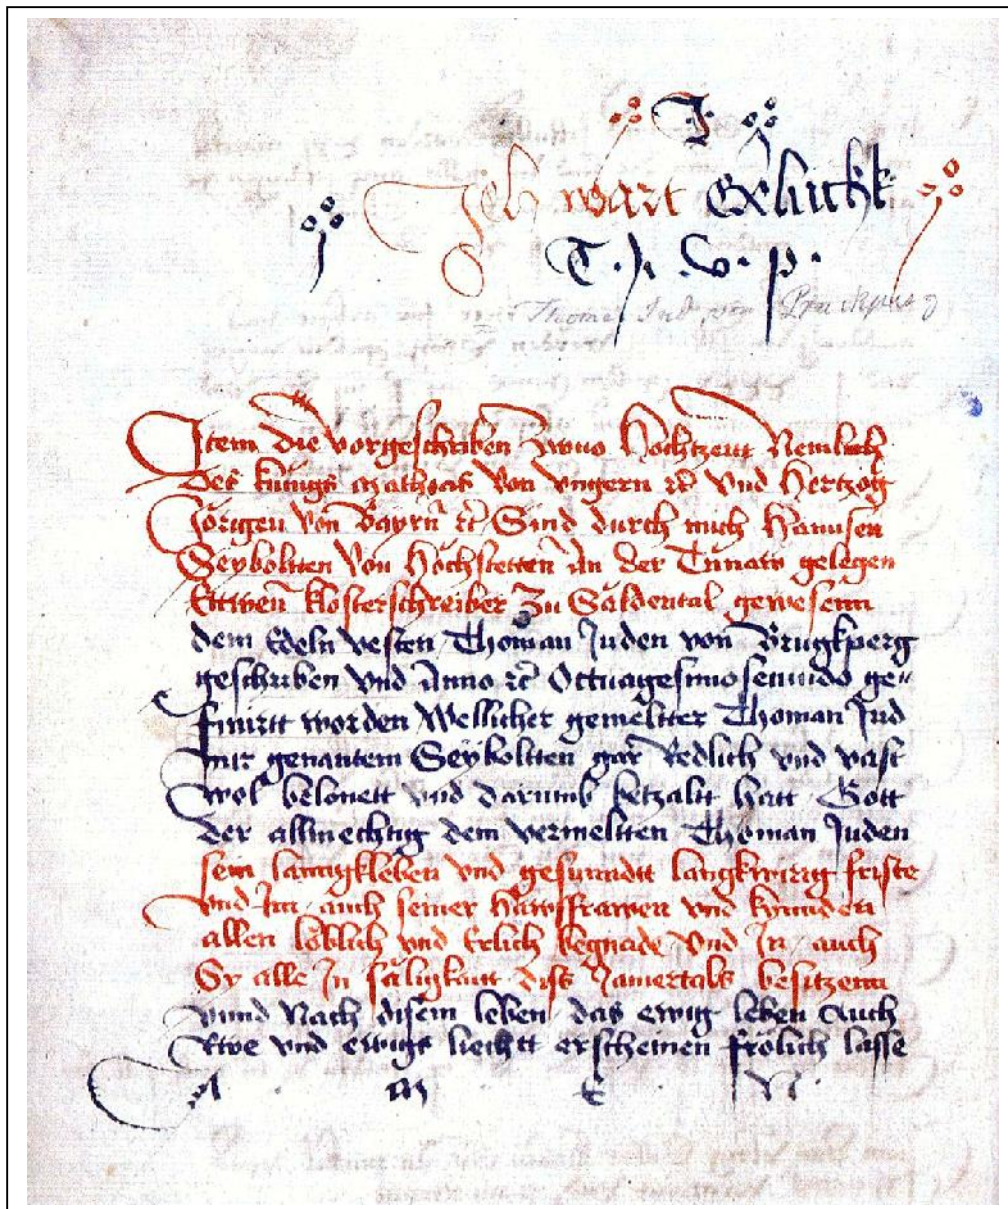 ·J·
Ich wart Gelückh
T · J · v · p ·
Thoman Jud von Pruckperg
Item die vorgeschriben zwuo Hochtzeitt Nemlich
des kunigs Mathias von vngern etc Vnd Hertzog
Jörigen von Bayrn etc Sind durch mich Hannsen
Seyboltten Von Höchstetten An der Tunaw gelegen
Ettwen klosterschreiber Zu Säldental gewesenn
dem Edeln vesten Thoman Juden von Brugkperg
geschriben vnd Anno etc Octuagesimosecundo ge-
finirtt worden Wellicher gemeltter Thoman Jud
mir genantem Seyboltten gar Redlich vnd vast
wol belonett vnd darumb betzaltt hatt Gott
der allmechtig dem vermeltten Thoman Juden
sein lanngkleben vnd gesunndtt langkwirig friste
vnd Im auch seiner Hawsfrawen vnd kynnden
allen löblich vnd Erlich begnade Vnd In auch
Sy alle In säligkaitt diss Jamertals besitzenn
vnnd Nach disem leben das ewig leben Auch
Rwe vnd ewigs liechtt erscheinen frölich lasse
A M E N ·